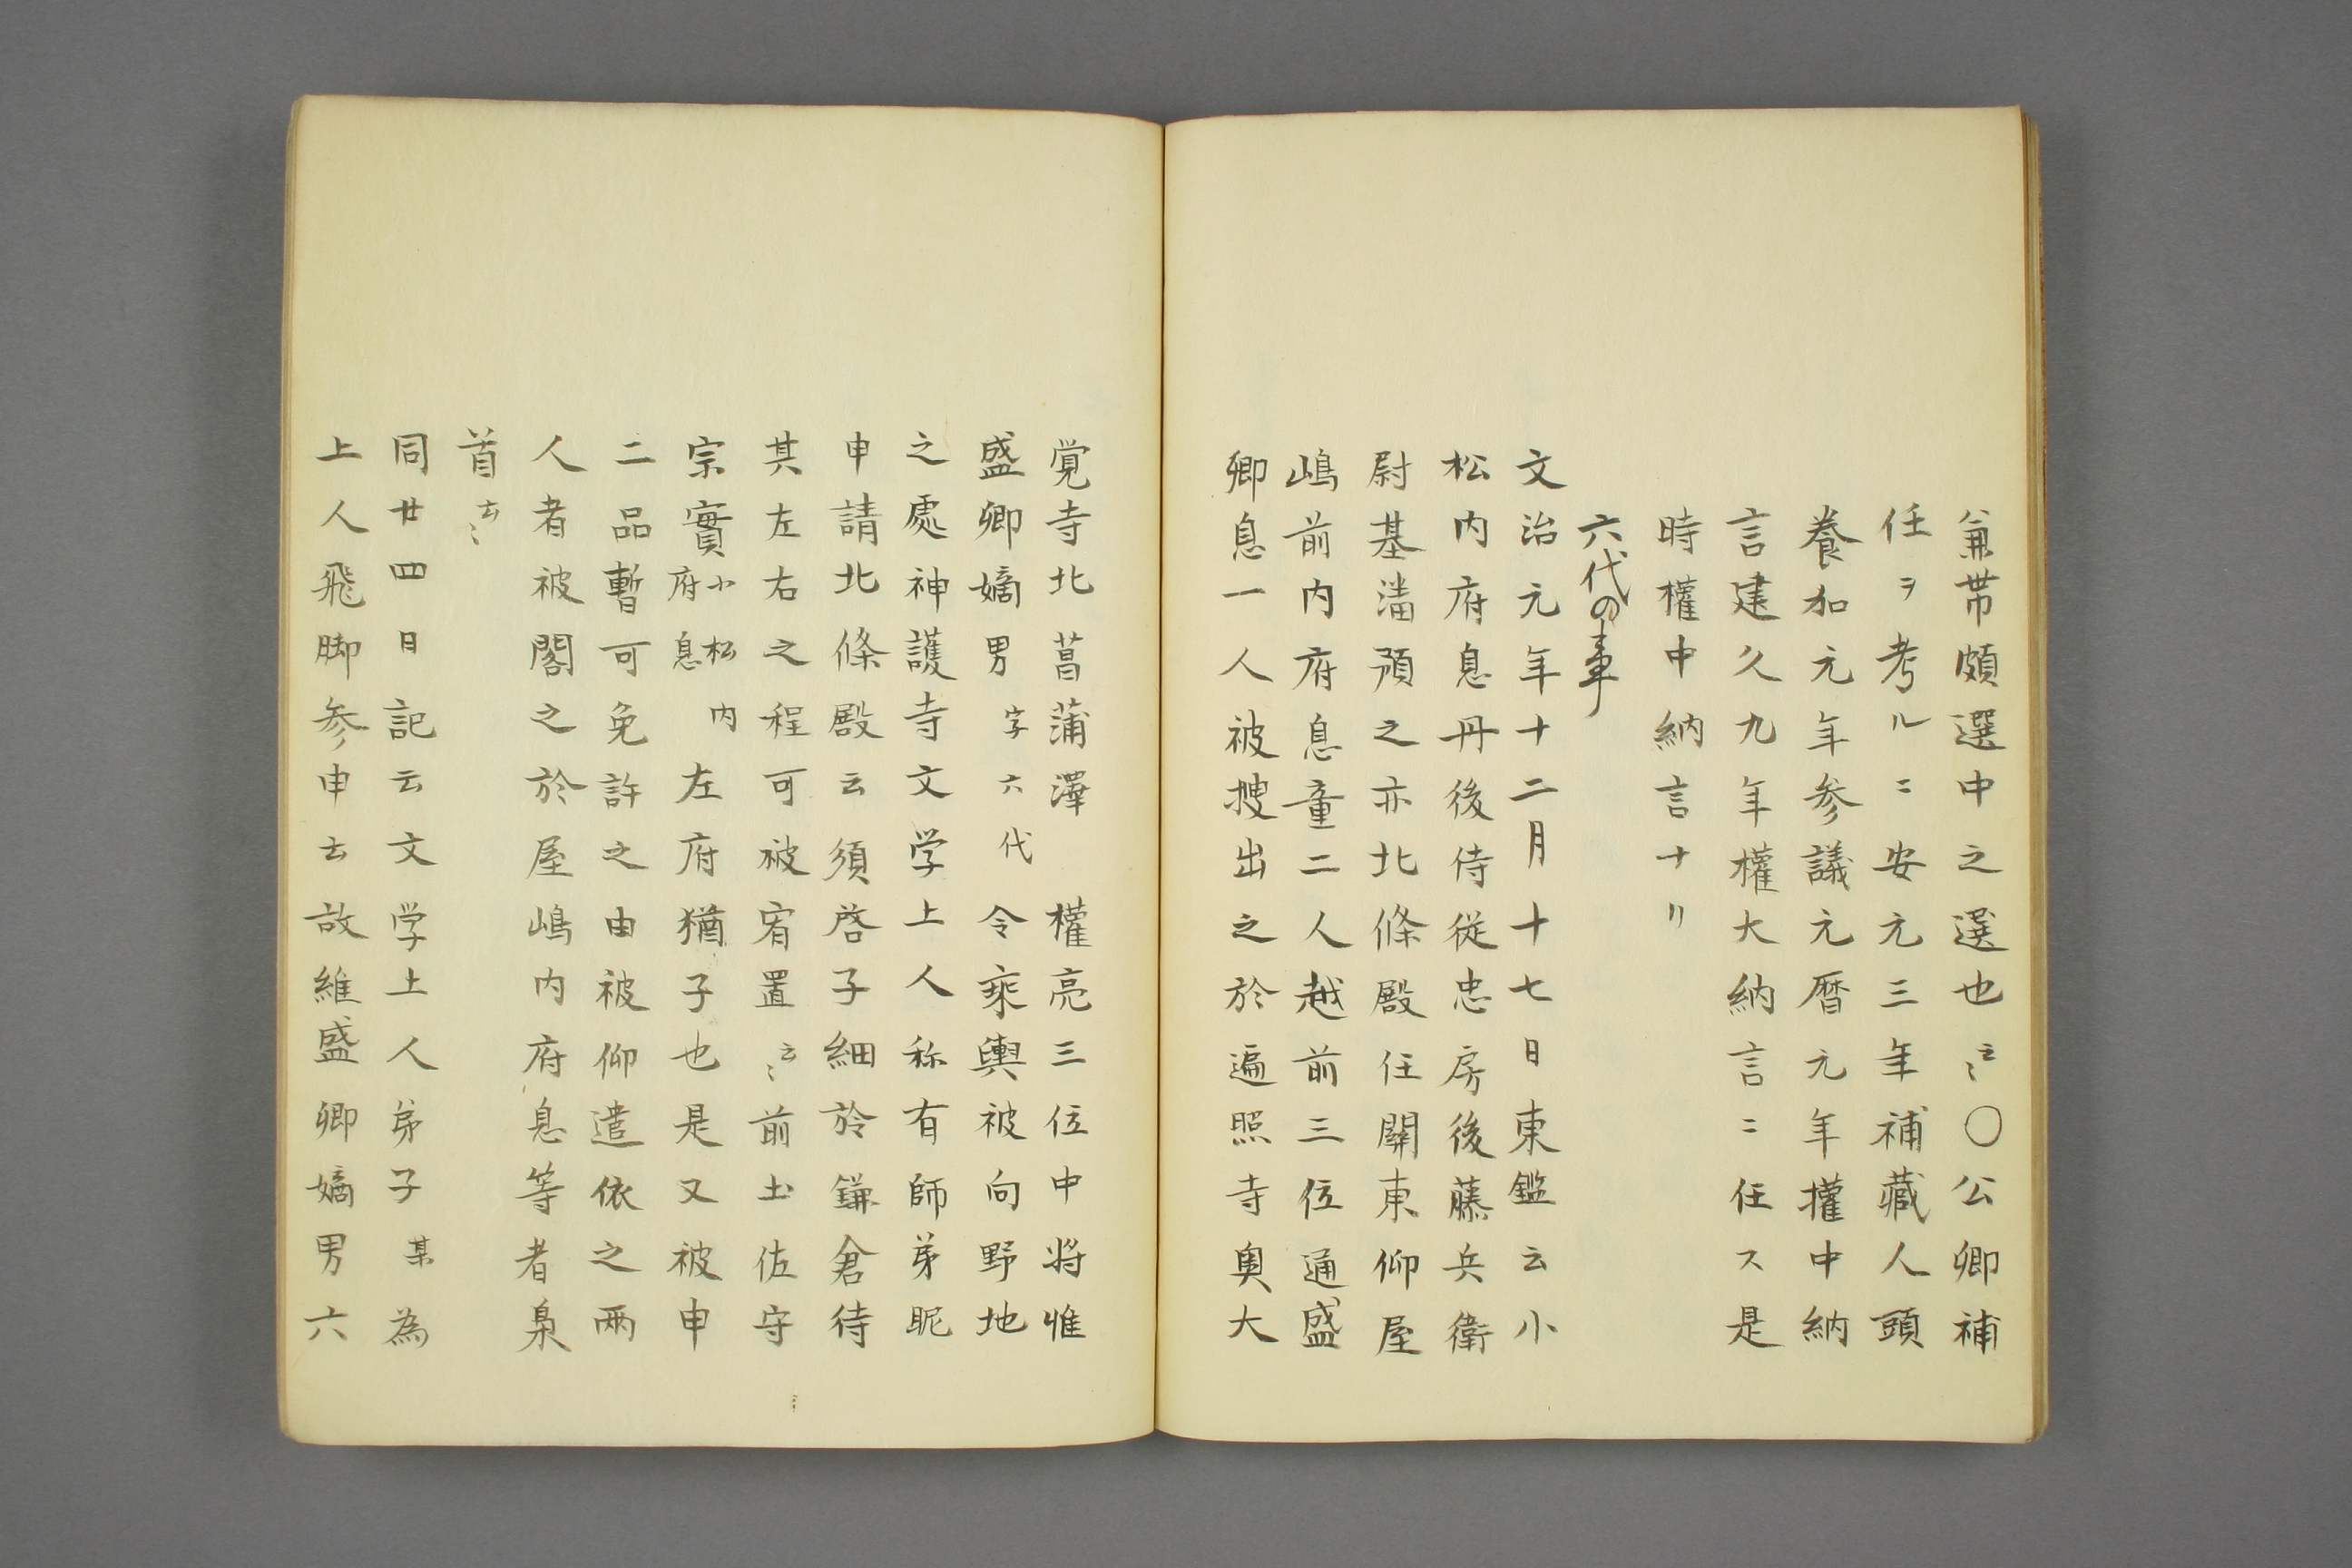 兼帯頗選中之選也云〻〇公卿補
任ヲ考ルニ安元三年補藏人頭
養和元年参議元暦元年權中納
言建久九年權大納言ニ任ス是
時權中納言ナリ
六代の事
文治元年十二月十七日東鑑云小
松内府息丹後侍従忠房後藤兵衛
尉基潘預之亦北條殿任關東仰屋
嶋前内府息童二人越前三位通盛
卿息一人被搜出之於遍照寺奥大
覚寺北菖蒲澤　權亮三位中将惟
盛卿嫡男字六代令乘輿被向野地
之處神護寺文学上人称有師弟眤
申請北條殿云須啓子細於鎌倉待
其左右之程可被宥置云〻前土佐守
宗實小松内府息左府猶子也是又被申
二品暫可免許之由被仰遣依之兩
人者被閣之於屋嶋内府息等者梟
首云〻
同廿四日記云文学上人弟子某為
上人飛脚参申云故維盛卿嫡男六